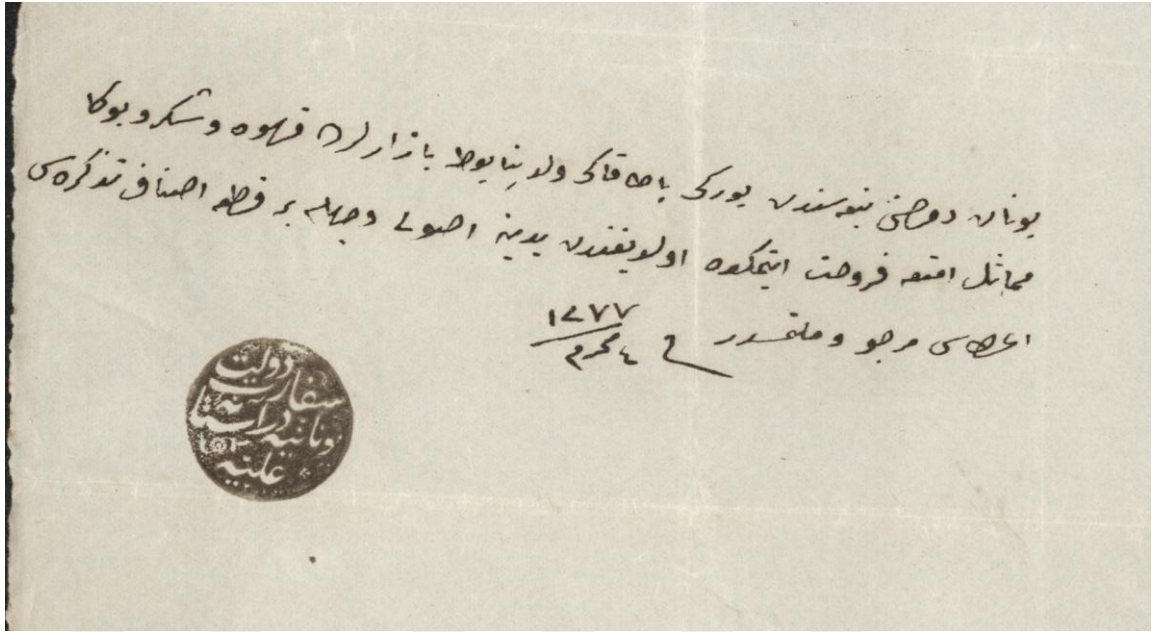 يونان دولتی تبعه سندن يوركی باصقاكی ولد پنايوط بازارلرده قهوه و شكر و بوكا
مماثل امتعه فروخت ايتمكده اولديغندن يدينه اصولی وجهله بر قطعه اصناف تذكره سی
اعطاسی مرجو و ملتمسدر فی ٤ محرم ١٢٧٧
سفارت دولت
يونانيه در آستانه
عليه